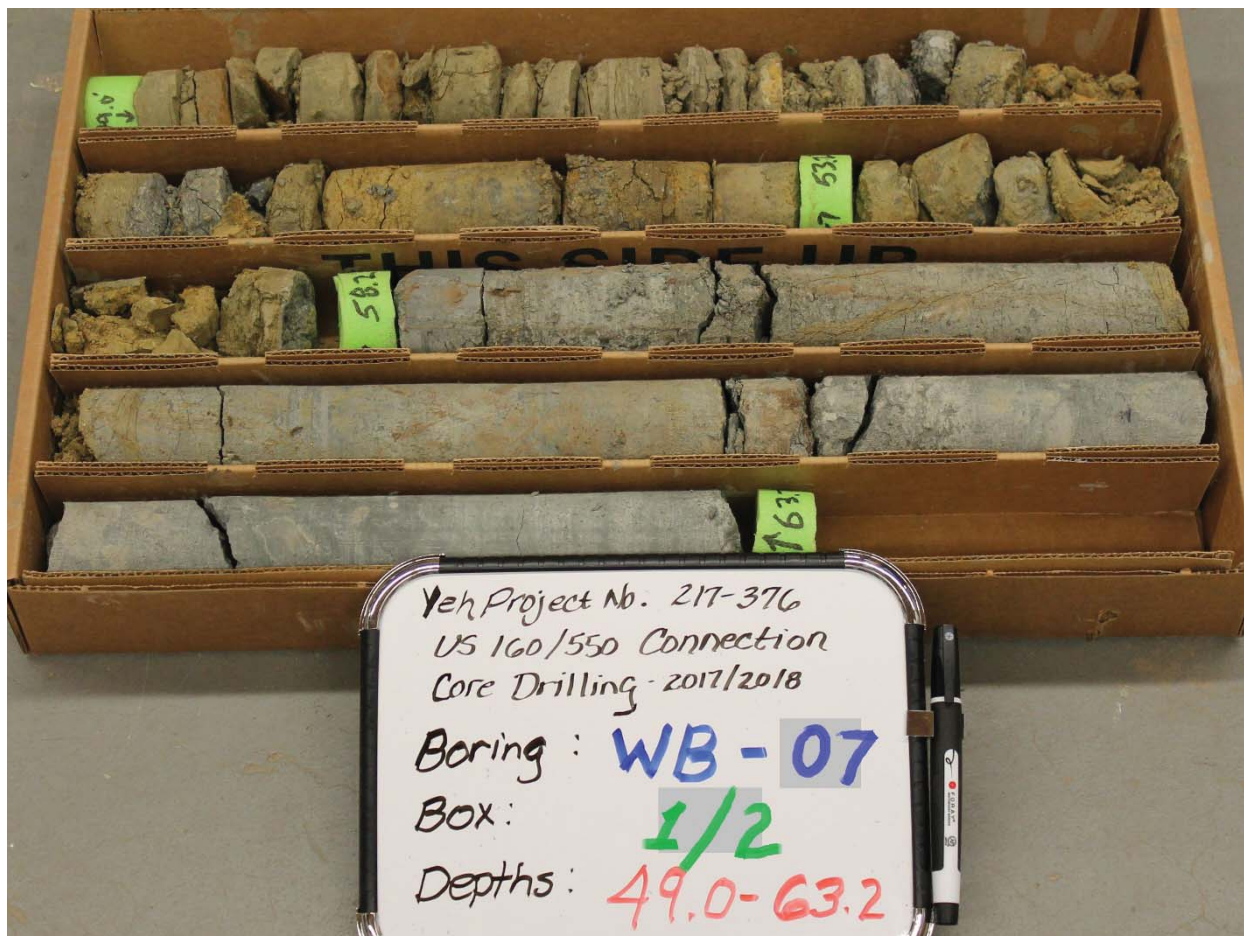 9.0'
53.2
THIS SIDE UP
58.2
63.2
Yeh Project No. 217-376
US 160/550 Connection
Core Drilling - 2017/2018
Boring : WB - 07
Box: 1/2
Depths: 49.0-63.2